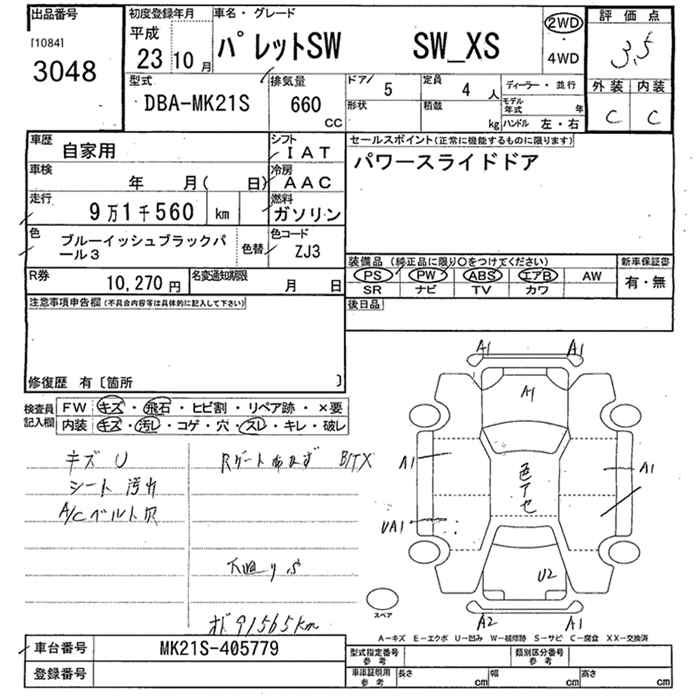 出品番号
[1084]
3048
初度登録年月
平成
23 10 月
車名・グレード
パレットSW SW_XS
2WD
4WD
評価点
3.5
外装 内装
C C
型式
DBA-MK21S
排気量
660 CC
ドア 5
定員 4 人
形状
積載 kg
ディーラー・並行
モデル年式 年
ハンドル 左・右
車歴 自家用
シフト IAT
車検 年 月( 日)
冷房 AAC
走行 9万1千560 km
燃料 ガソリン
色 ブルーイッシュブラックパール3
色替
色コード ZJ3
R券 10,270円
名変通知期限 月 日
セールスポイント(正常に機能するものに限ります)
パワースライドドア
装備品 (純正品に限り○をつけてください)
新車保証書
PS PW ABS エアB AW
有・無
SR ナビ TV カワ
後日品
注意事項申告欄(不具合内容等は具体的に記入して下さい)
修復歴 有〔箇所 〕
検査員記入欄
FW キズ・飛石・ヒビ割・リペア跡・×要
内装 キズ・汚レ・コゲ・穴・スレ・キレ・破レ
キズ U
シート 汚れ
A/Cベルト穴
B/TX
91565km
A1 A1
A1
A1 A1
色アセ
UA1
U2
A2 A1
スペア
A-キズ E-エクボ U-凹み W-補修跡 S-サビ C-腐食 XX-交換済
車台番号 MK21S-405779
登録番号
型式指定番号 参考
類別区分番号 参考
車庫証明用 参考
長さ cm
幅 cm
高さ cm